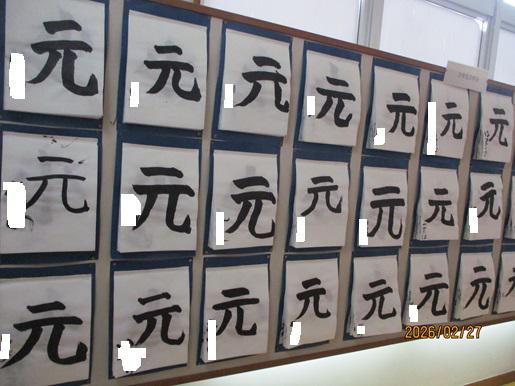 元 元 元 元 元 元 元
元 元 元 元 元 元 元
元 元 元 元 元 元 元 元
2026/02/27